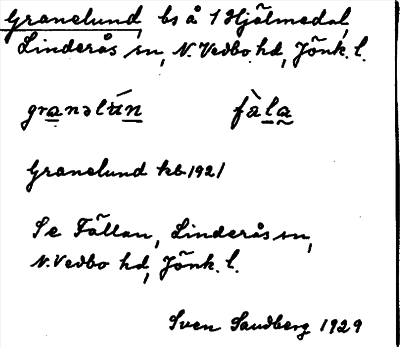 Granelund bs å 1 Hjälmedal,
Linderås sn, N. Vedbo hd, Jönk. l.
granəlún fàla
Granelund kb 1921
Se Fällan, Linderås sn,
N. Vedbo hd, Jönk. l.
Sven Sandberg 1929